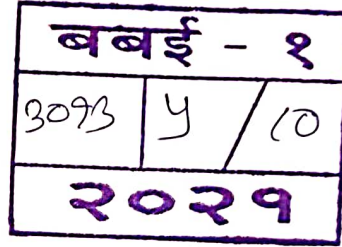 बबई - १
3093 | y / 10
२०२१